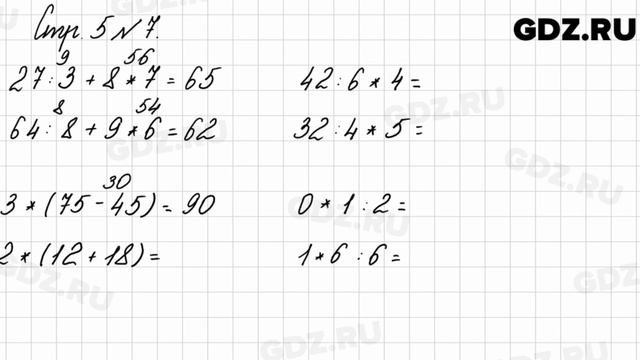 Стр. 5 № 7.
GDZ.RU
9 56
27 : 3 + 8 * 7 = 65
42 : 6 * 4 =
8 54
64 : 8 + 9 * 6 = 62
32 : 4 * 5 =
30
3 * (75 - 45) = 90
0 * 1 : 2 =
2 * (12 + 18) =
1 * 6 : 6 =
GDZ.RU
GDZ.RU
GDZ.RU
GDZ.RU
GDZ.RU
GDZ.RU
GDZ.RU